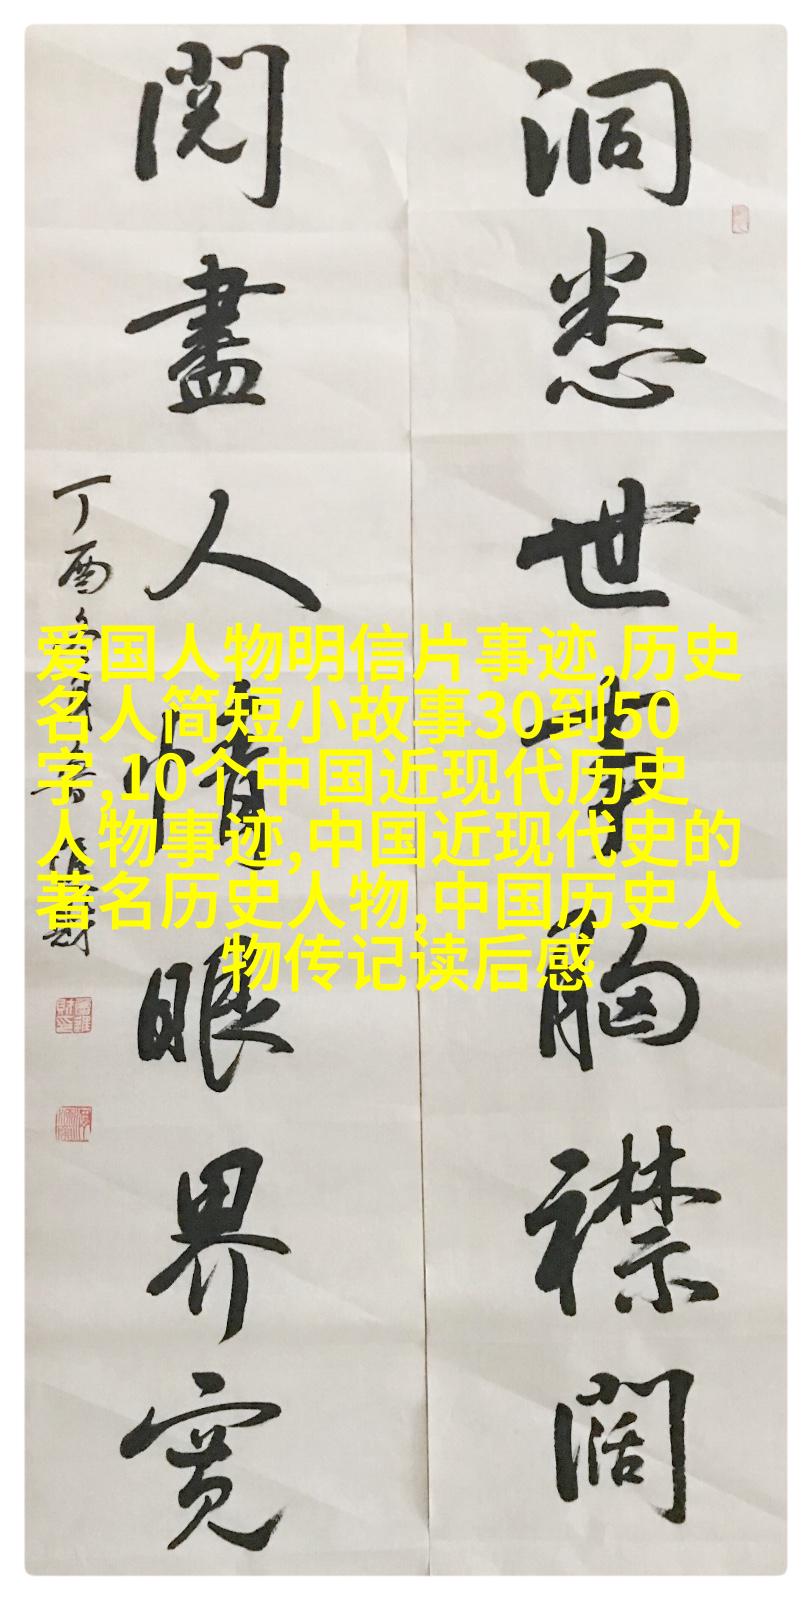 洞悉世事胸襟阔
阅盡人情眼界宽
丁酉
爱国人物明信片事迹,历史
名人简短小故事30到50
字,10个中国近现代历史
人物事迹,中国近现代史的
著名历史人物,中国历史人
物传记读后感